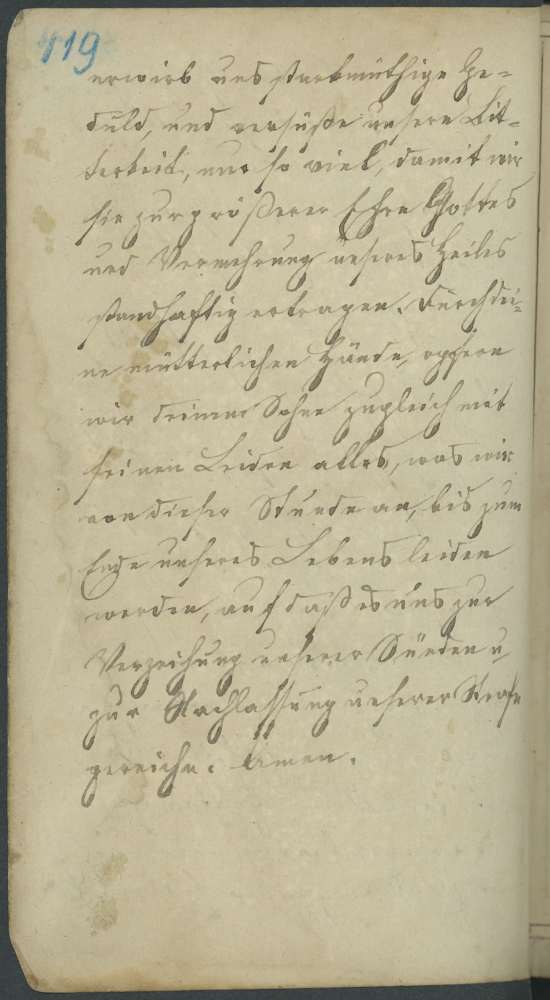 119
erwirb uns starkmüthige Ge-
duld, und versüße unsere Bit-
terkeit, nur so viel, damit wir
sie zur größerer Ehre Gottes
und Vermehrung unseres Heiles
standhaftig ertragen. Durch dei-
ne mütterlichen Hände, opfern
wir deinem Sohne zugleich mit
seinen Leiden alles, was wir
von dieser Stunde an, bis zum
Ende unseres Lebens leiden
werden, auf daß es uns zur
Verzeihung unserer Sünden u.
zur Nachlassung unserer Strafe
gereiche. Amen.